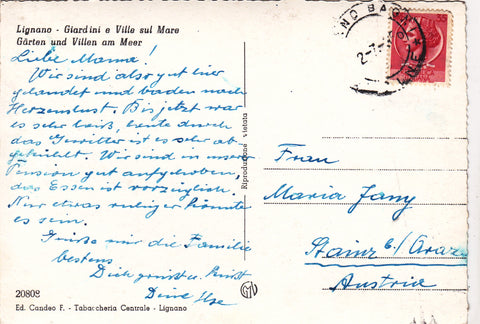 Lignano - Giardini e Ville sul Mare
Gärten und Villen am Meer
Liebe Mama!
Wir sind also gut hier
gelandet und baden nach
Herzenslust. Bis jetzt war
es sehr heiß, heute durch
das Gewitter ist es sehr ab-
gekühlt. Wir sind in unserer
Pension gut aufgehoben,
das Essen ist vorzüglich.
Nur etwas ruhiger könnte
es sein.
Grüße mir die Familie
bestens
Dich grüßt u. küßt
Deine Ilse
20808
Ed. Candeo F. - Tabaccheria Centrale - Lignano
Riproduzione vietata
35
Frau
Maria Jany
Stainz b./Graz
Austria